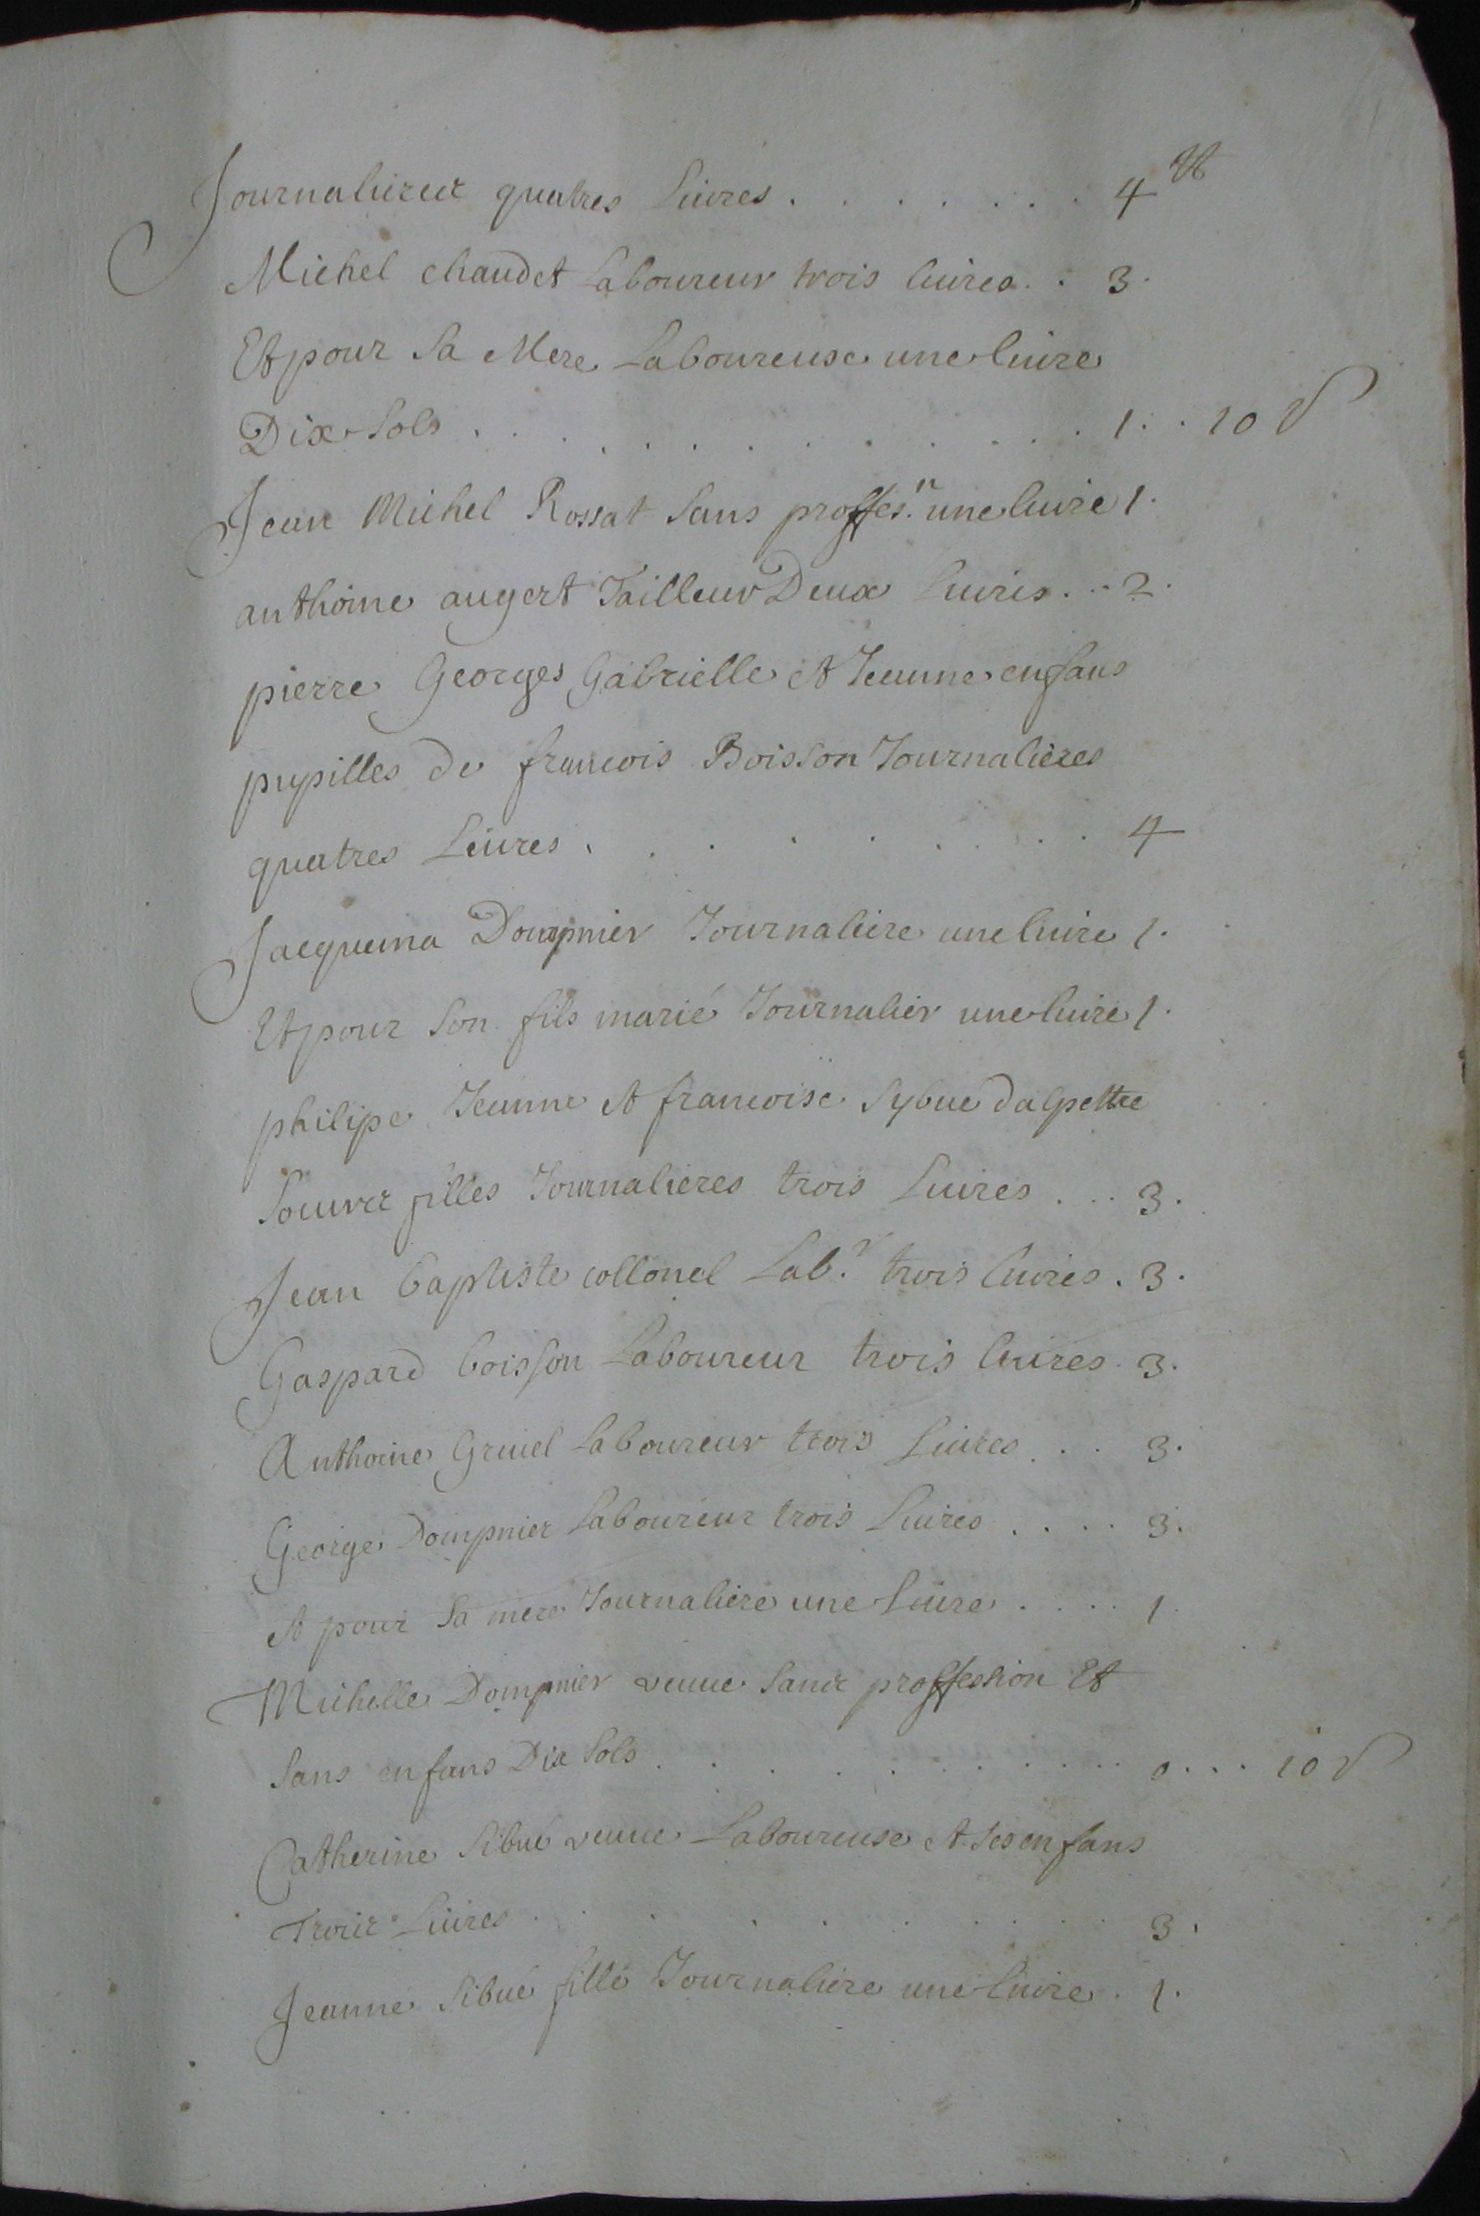 Journalieres quatres Livres . . . . . . . 4 tt
Michel chaudet Laboureur trois livres . . 3 .
Et pour Sa Mere Laboureuse une livre
Dix Sols . . . . . . . . . . . . 1 . . 10 s
Jean Michel Rossat Sans proffes.n une livre 1 .
anthoine augert Tailleur Deux livres . . 2 .
pierre Georges Gabrielle et Jeanne enfans
pupilles de francois Boisson Journalieres
quatres Livres . . . . . . . . . 4
Jacquema Dompnier Journaliere une livre 1 .
Et pour Son fils marié Journalier une livre 1 .
philipe Jeanne et francoise Sybue dalpettre
Soeurs filles Journalieres trois Livres . . . 3 .
Jean baptiste collonel Lab.r trois livres . 3 .
Gaspard boisson Laboureur trois livres . 3 .
Anthoine Gruiel Laboureur trois Livres . . 3 .
George Dompnier Laboureur trois Livres . . . . 3 .
et pour Sa mere Journaliere une Livre . . . . 1 .
Michelle Dompnier veuue Sans proffession Et
Sans enfans Dix Sols . . . . . . . . . . 0 . . . 10 s
Catherine Sibué veuue Laboureuse et Ses enfans
Trois Livres . . . . . . . . . 3 .
Jeanne Sibué fille Journaliere une livre . 1 .